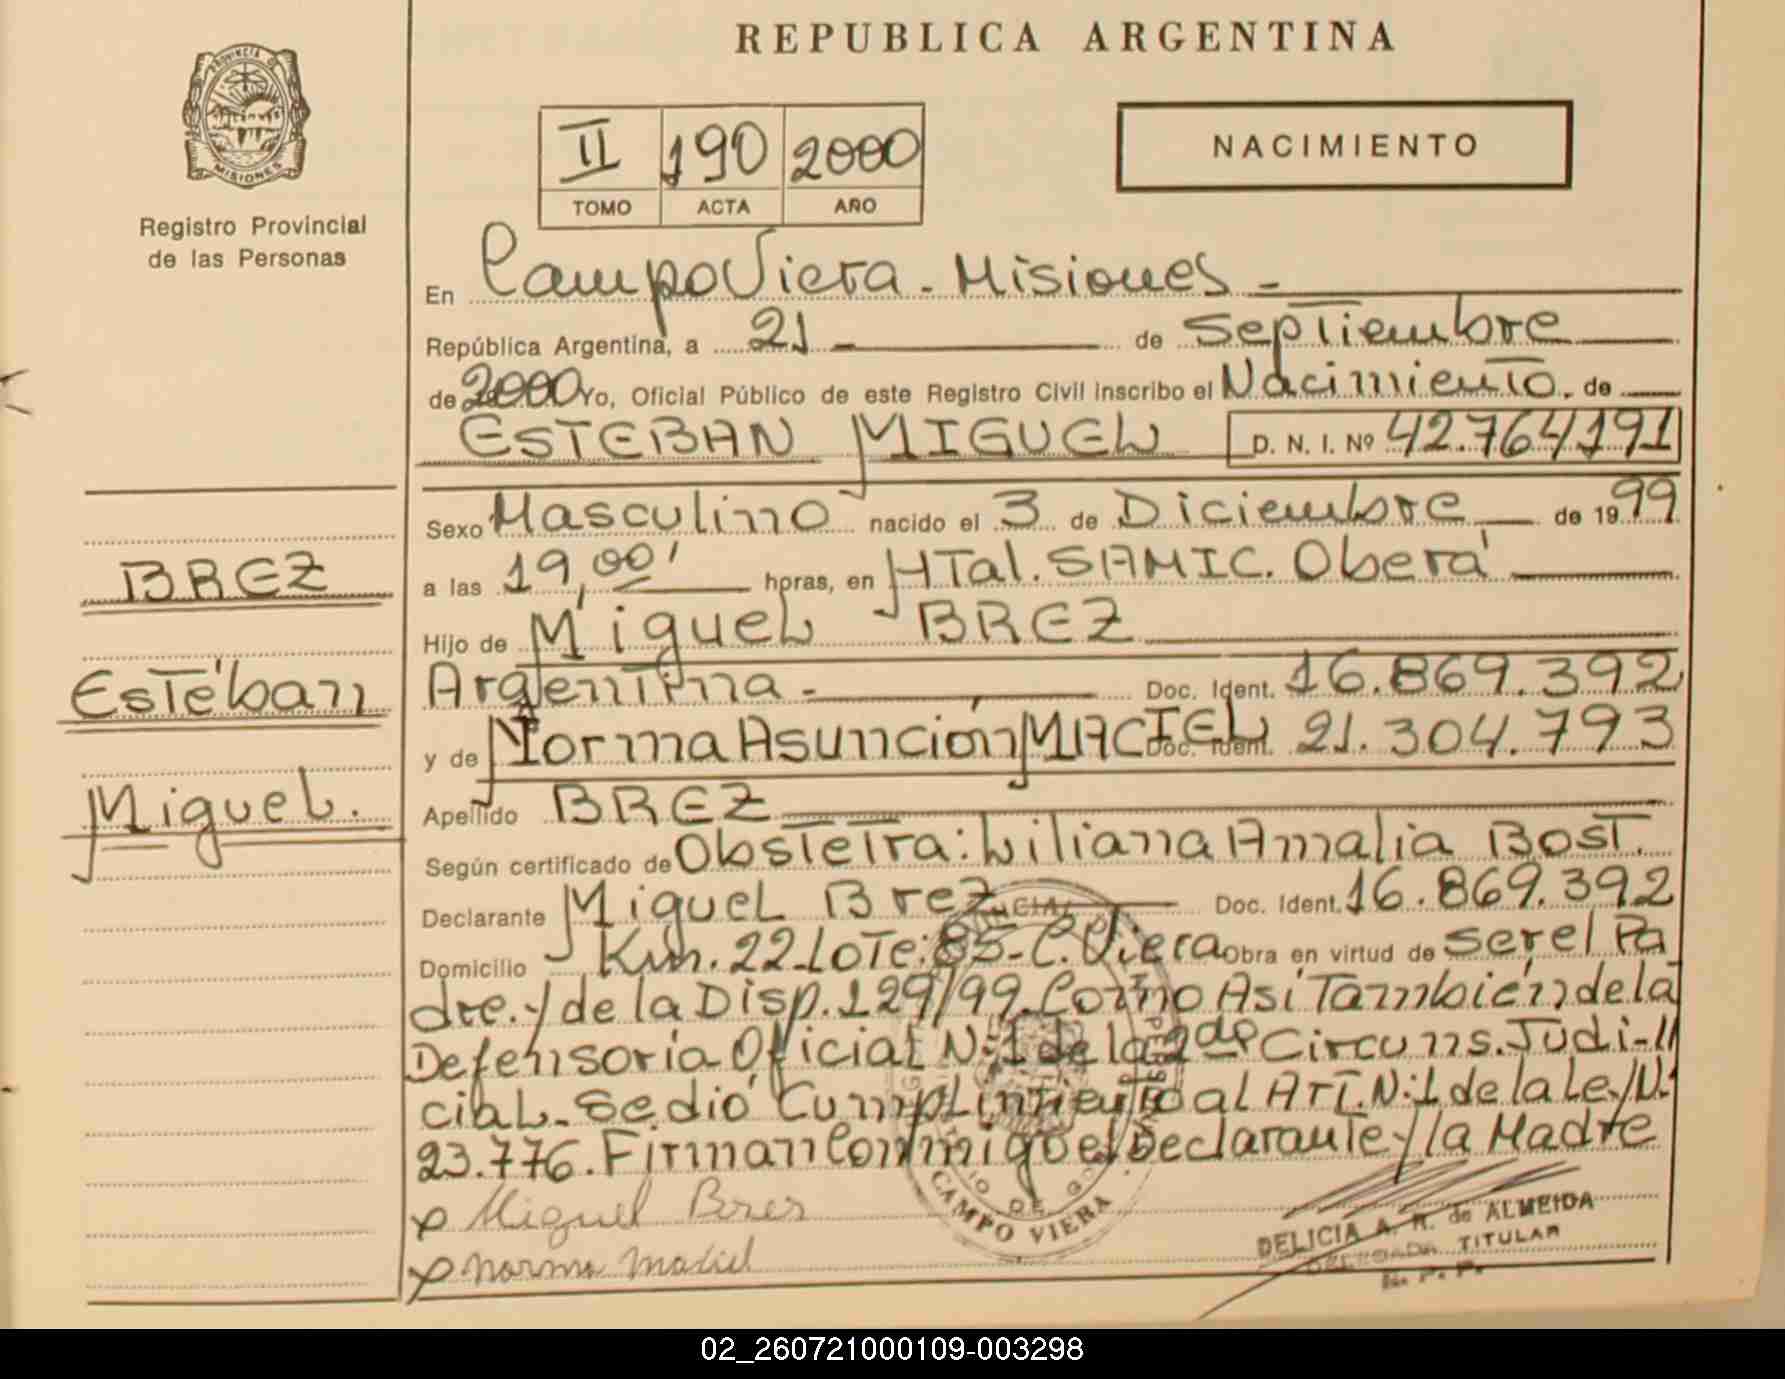 REPUBLICA ARGENTINA
PROVINCIA DE
MISIONES
Registro Provincial
de las Personas
II 190 2000
TOMO ACTA AÑO
NACIMIENTO
En Campo Viera - Misiones -
República Argentina, a 21 - de Septiembre
de 2000 Yo, Oficial Público de este Registro Civil inscribo el Nacimiento. de
ESTEBAN MIGUEL D. N. I. Nº 42.764191
Sexo Masculino nacido el 3 de Diciembre de 1999
a las 19,00' horas, en HTal. SAMIC. Oberá
Hijo de Miguel BREZ
Argentina - Doc. Ident. 16.869.392
y de Norma Asunción MACIEL Doc. Ident. 21.304.793
Apellido BREZ
Según certificado de Obstetra: Liliana Amalia Bost.
Declarante Miguel Brez Doc. Ident. 16.869.392
Domicilio Km. 22 Lote: 85 - C. Viera Obra en virtud de ser el Pa
dre. y de la Disp. 129/99. Como Asi También de la
Defensoría Oficial N:1 de la 2da Circuns. Judi-//
cial. Se dió Cumplimiento al Art. N:1 de la Ley N:
23.776. Firman Conmigo el Declarante y la Madre
x Miguel Bres
x Norma Maciel
BREZ
Estéban
Miguel.
CAMPO VIERA
DELICIA A. R. de ALMEIDA
DELEGADA TITULAR
R. P. P.
02_260721000109-003298